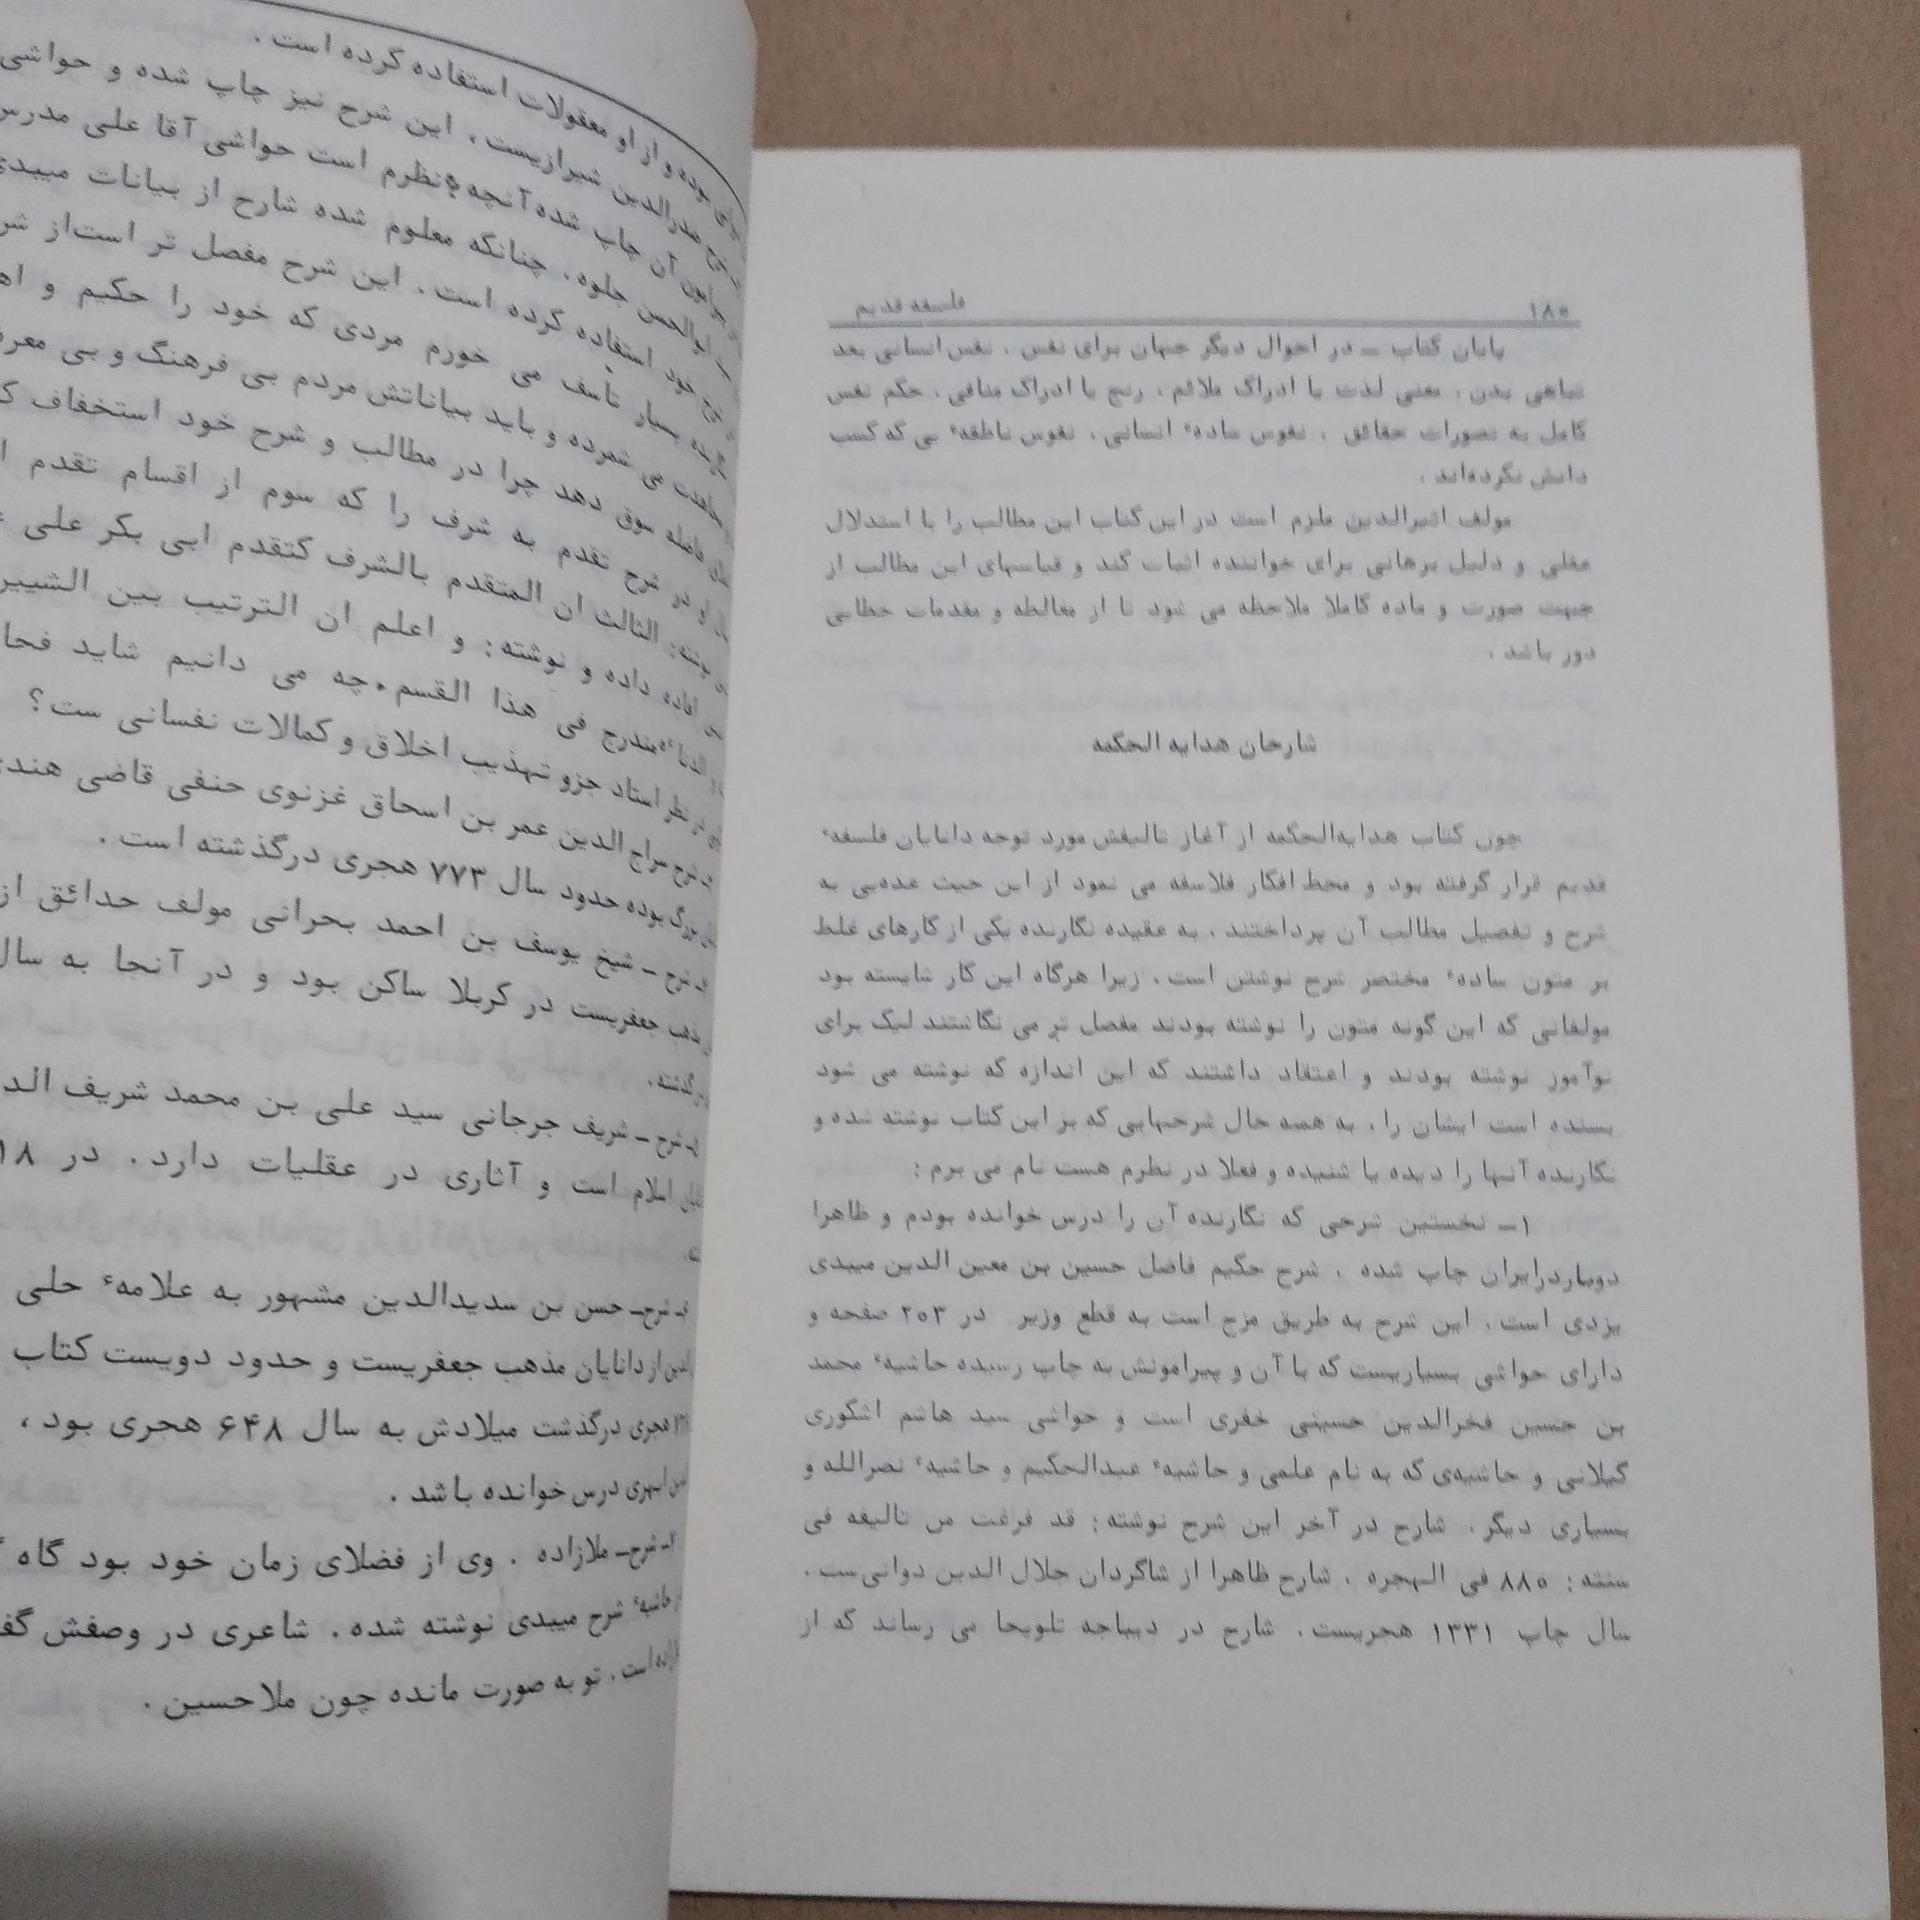 ۱۸۰
فلسفه قدیم
پایان کتاب ــ در احوال دیگر جهان برای نفس ، نفس انسانی بعد
تباهی بدن ، معنی لذت یا ادراک ملائم ، رنج یا ادراک منافی ، حکم نفس
کامل به تصورات حقائق ، نفوس سادهٔ انسانی ، نفوس ناطقهٔ یی که کسب
دانش نکرده‌اند .
مولف اثیرالدین ملزم است در این کتاب این مطالب را با استدلال
عقلی و دلیل برهانی برای خواننده اثبات کند و قیاسهای این مطالب از
جهت صورت و ماده کاملا ملاحظه می شود تا از مغالطه و مقدمات خطابی
دور باشد .
شارحان هدایه الحکمه
چون کتاب هدایه‌الحکمه از آغاز تالیفش مورد توجه دانایان فلسفهٔ
قدیم قرار گرفته بود و محط افکار فلاسفه می نمود از این حیث عده‌یی به
شرح و تفصیل مطالب آن پرداختند ، به عقیده نگارنده یکی از کارهای غلط
بر متون سادهٔ مختصر شرح نوشتن است ، زیرا هرگاه این کار شایسته بود
مولفانی که این گونه متون را نوشته بودند مفصل تر می نگاشتند لیک برای
نوآموز نوشته بودند و اعتقاد داشتند که این اندازه که نوشته می شود
بسنده است ایشان را ، به همه حال شرحهایی که بر این کتاب نوشته شده و
نگارنده آنها را دیده یا شنیده و فعلا در نظرم هست نام می برم :
۱ــ نخستین شرحی که نگارنده آن را درس خوانده بودم و ظاهرا
دوباردرایران چاپ شده ، شرح حکیم فاضل حسین بن معین الدین میبدی
یزدی است ، این شرح به طریق مزج است به قطع وزیر در ۲۰۳ صفحه و
دارای حواشی بسیاریست که با آن و پیرامونش به چاپ رسیده حاشیهٔ محمد
بن حسین فخرالدین حسینی خفری است و حواشی سید هاشم اشکوری
گیلانی و حاشیه‌ی که به نام علمی و حاشیهٔ عبدالحکیم و حاشیهٔ نصرالله و
بسیاری دیگر . شارح در آخر این شرح نوشته : قد فرغت من تالیفه فی
سنته : ۸۸۰ فی الهجره ، شارح ظاهرا از شاگردان جلال الدین دوانی‌ست .
سال چاپ ۱۳۳۱ هجریست . شارح در دیباجه تلویحا می رساند که از
بوده و از او معقولات استفاده کرده است .
صدرالدین شیرازیست ، این شرح نیز چاپ شده و حواشی
آن چاپ شده آنچه نظرم است حواشی آقا علی مدرس
ابوالحسن جلوه ، چنانکه معلوم شده شارح از بیانات میبدی
خود استفاده کرده است . این شرح مفصل تر است‌از
بسیار تأسف می خورم مردی که خود را حکیم و
می شمرده و باید بیاناتش مردم بی فرهنگ و بی
فاضله سوق دهد چرا در مطالب و شرح خود استخفاف
او در شرح تقدم به شرف را که سوم از اقسام تقدم
نوشته: الثالث ان المتقدم بالشرف کتقدم ابی بکر علی
افاده داده و نوشته: و اعلم ان الترتیب بین
مندرج فی هذا القسم . چه می دانیم شاید
نظر استاد جزو تهذیب اخلاق و کمالات نفسانی ست؟
شرح سراج الدین عمر بن اسحاق غزنوی حنفی قاضی
بزرگ بوده حدود سال ۷۷۳ هجری درگذشته است .
شرح ــ شیخ یوسف بن احمد بحرانی مولف حدائق از
جعفریست در کربلا ساکن بود و در آنجا به سال
شرح ــ شریف جرجانی سید علی بن محمد شریف
اسلام است و آثاری در عقلیات دارد . در
شرح‌ــ حسن بن سدیدالدین مشهور به علامهٔ حلی
از دانایان مذهب جعفریست و حدود دویست کتاب
هجری درگذشت میلادش به سال ۶۴۸ هجری بود ،
ابهری درس خوانده باشد .
شرح‌ــ ملازاده . وی از فضلای زمان خود بود گاه
حاشیهٔ شرح میبدی نوشته شده . شاعری در وصفش
است . تو به صورت مانده چون ملاحسین .